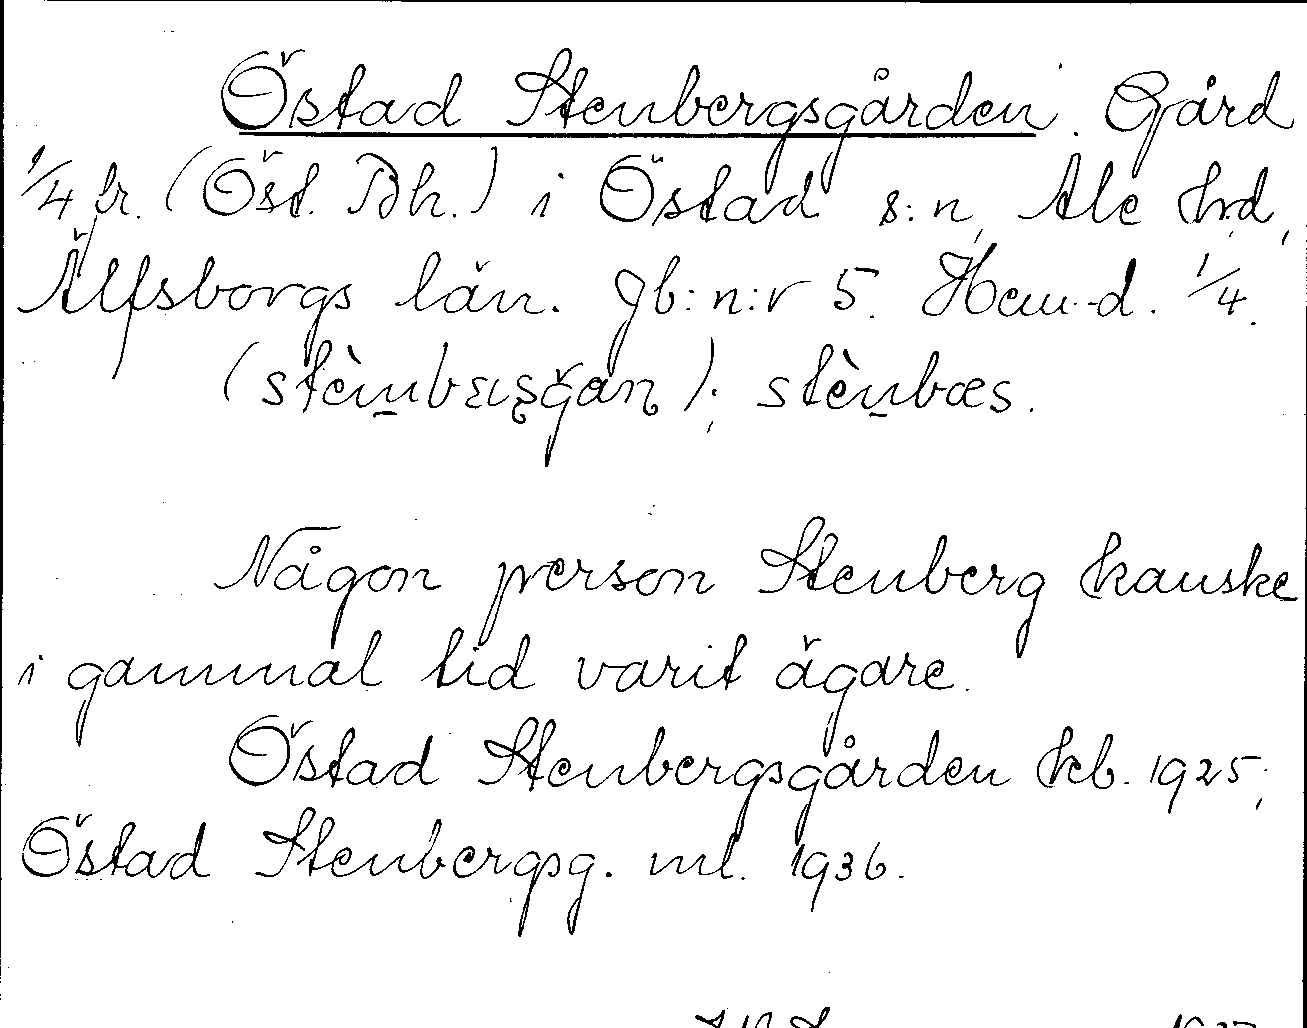 Östad Stenbergsgården. Gård
1/4 fr. (Öst. Bh.) i Östad s:n, Ale hrd,
Älfsborgs län. Jb:n:r 5. Hem-d. 1/4.
Någon person Stenberg kanske
i gammal tid varit ägare.
Östad Stenbergsgården kb. 1925;
Östad Stenbergsg. ml. 1936.